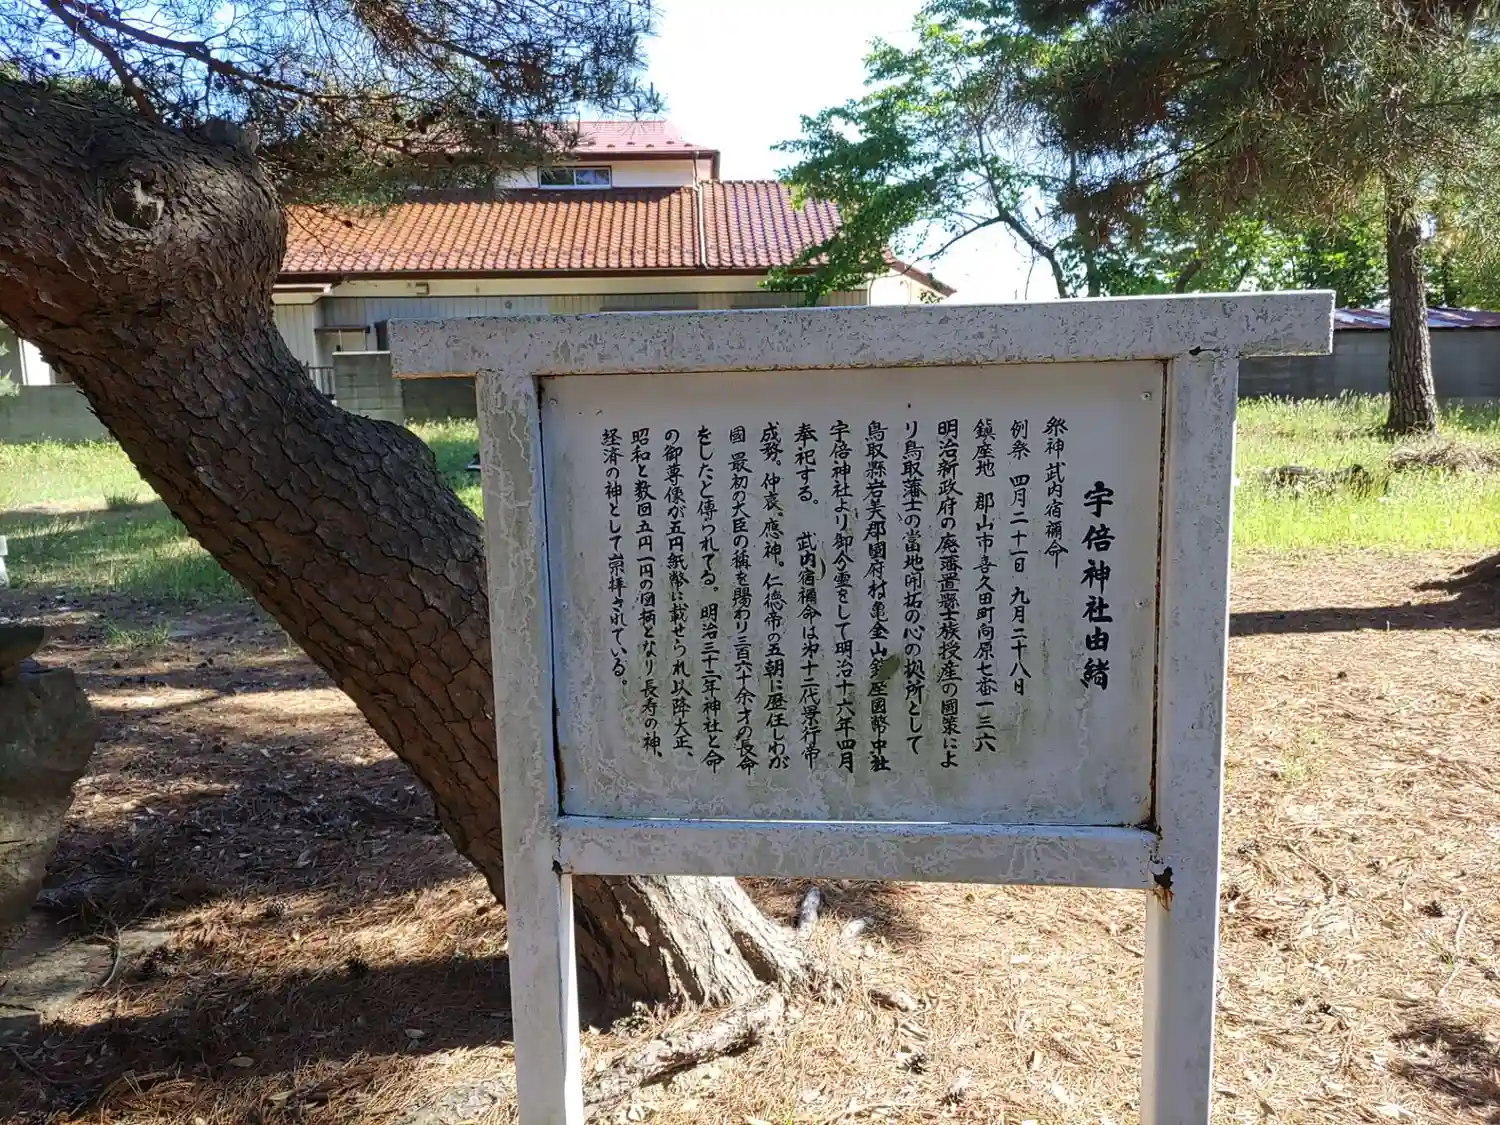 宇倍神社由緒
祭神 武内宿禰命
例祭 四月二十一日 九月二十八日
鎮座地 郡山市喜久田町向原七番一三六
明治新政府の廃藩置縣士族授産の國策によ
リ鳥取藩士の當地開拓の心の拠所として
鳥取縣岩美郡國府村亀金山鎮座國幣中社
宇倍神社より御分霊をして明治十六年四月
奉祀する。 武内宿禰命は第十二代景行帝
成務。仲哀、應神。仁徳帝の五朝に歴任しわが
國 最初の大臣の称を賜わり三百六十余才の長命
をしたと傳られてる。明治三十二年神社と命
の御尊像が五円紙幣に載せられ以降大正、
昭和と数回五円一円の図柄となり長寿の神、
経済の神として崇拝されている。